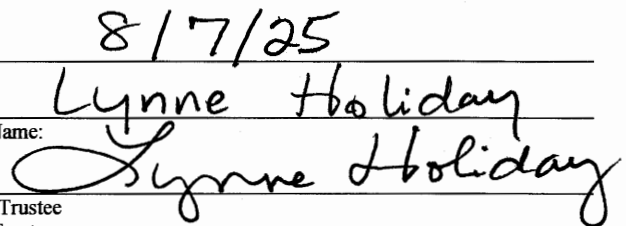 8/7/25
Lynne Holiday
Name:
Lynne Holiday
Trustee